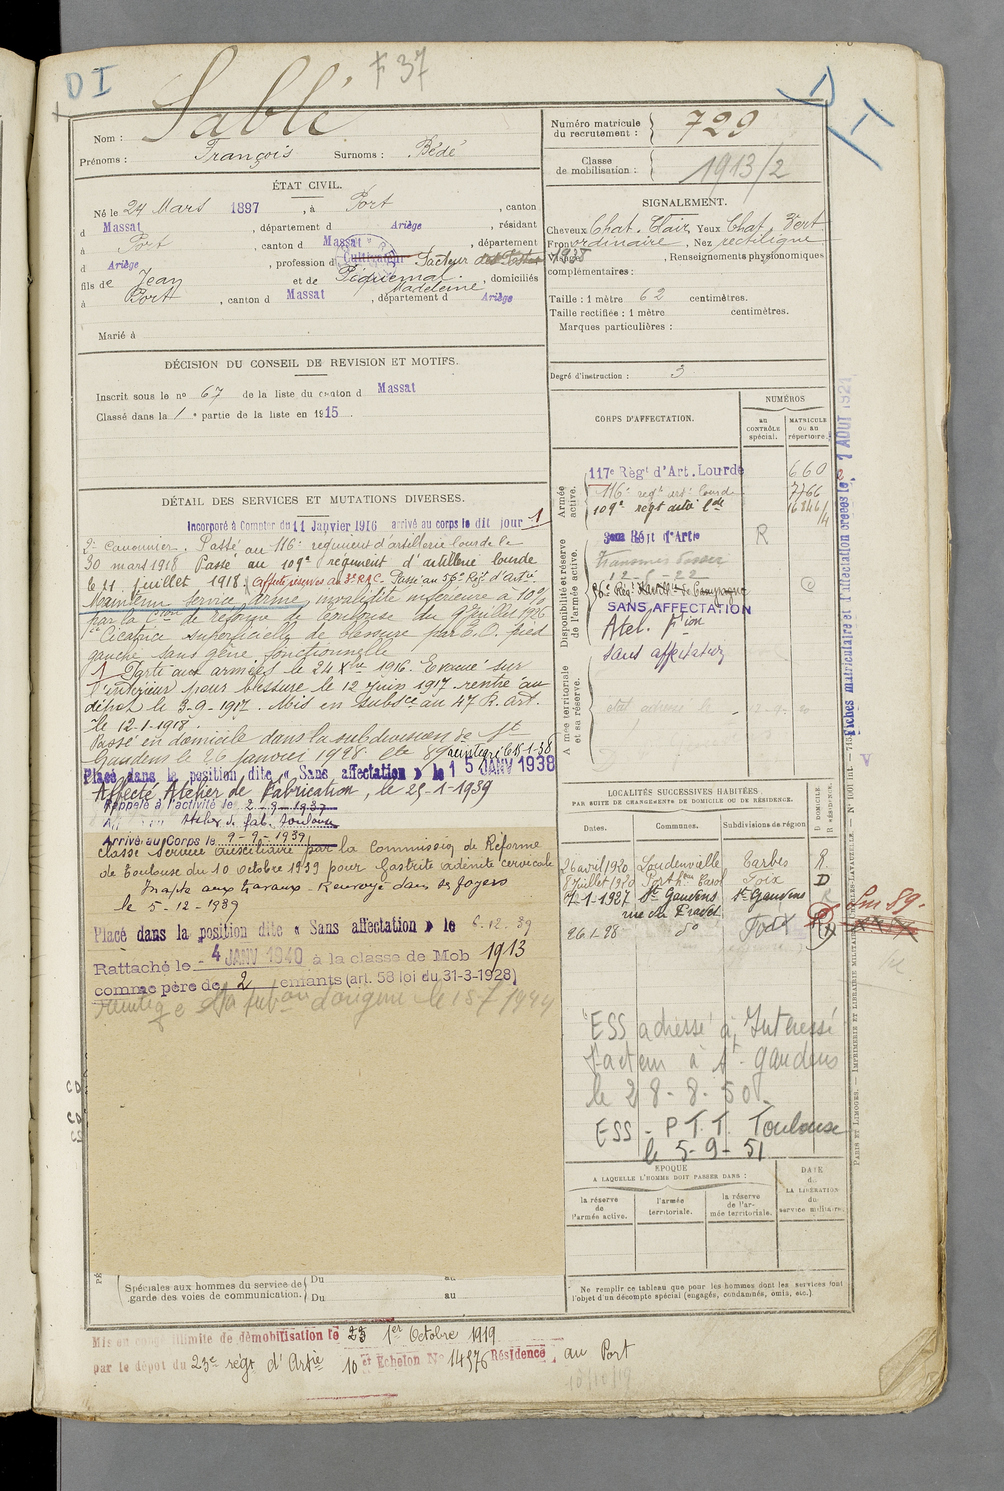 D I
F 37
Nom : Sablé
Prénoms : François Surnoms : Bédé
ÉTAT CIVIL.
Né le 24 Mars 1897, à Port, canton
d Massat, département d Ariège, résidant
à Port, canton d Massat, département
d Ariège, profession d Cultivateur Facteur des Postes
fils de Jean et de Piquemal Madeleine, domiciliés
à Port, canton d Massat, département d Ariège
Marié à
DÉCISION DU CONSEIL DE REVISION ET MOTIFS.
Inscrit sous le no 67 de la liste du canton d Massat
Classé dans la 1e partie de la liste en 1915.
DÉTAIL DES SERVICES ET MUTATIONS DIVERSES.
Incorporé à Compter du 11 Janvier 1916 arrivé au corps le dit jour 1
2e Canonnier. Passé au 116e régiment d'artillerie lourde le
30 mars 1918 Passé au 109e régiment d'artillerie lourde
le 21 juillet 1918. Affecté réserve au 3e R.A.C. Passé au 56e Rgt d'Artie
Maintenu service armé, invalidité inférieure à 10%
par la Cion de réforme de Toulouse du 9 juillet 1926
Cicatrice superficielle de blessure par E.O. pied
gauche sans gêne fonctionnelle
1 Parti aux armées le 24 Xbre 1916. Evacué sur
l'intérieur pour blessure le 12 juin 1917 rentré au
dépôt le 3-9-1917. Mis en subsce au 47 R. art.
le 12-1-1918.
Passé en domicile dans la subdivision de St
Gaudens le 26 janvier 1928.
Placé dans la position dite « Sans affectation » le 15 JANV 1938
Affecté Atelier de Fabrication, le 25-1-1939
Rappelé à l'activité le 2-9-1939
Atelier d. fab. Toulouse
Arrivé au Corps le 9-9-1939
classé service auxiliaire par la Commission de Réforme
de Toulouse du 10 octobre 1939 pour Gastrite adénite cervicale
Inapte aux travaux - Renvoyé dans ses foyers
le 5-12-1939
Placé dans la position dite « Sans affectation » le 6-12-39
Rattaché le - 4 JANV 1940 à la classe de Mob 1913
comme père de 2 enfants (art. 58 loi du 31-3-1928)
d'origine le 1 1944
Spéciales aux hommes du service de garde des voies de communication. Du au
Du au
Mis en congé illimité de démobilisation le 23 1er Octobre 1919
par le dépôt du 23e régt d'Artie 10 et Echelon No 14976 Résidence au Port
Numéro matricule du recrutement : 729
Classe de mobilisation : 1913/2
SIGNALEMENT.
Cheveux Chat. Clair, Yeux Chat. Vert
Front ordinaire, Nez rectiligne
Renseignements physionomiques
complémentaires :
Taille : 1 mètre 62 centimètres.
Taille rectifiée : 1 mètre centimètres.
Marques particulières :
Degré d'instruction : 3
CORPS D'AFFECTATION.
NUMÉROS
au contrôle spécial.
MATRICULE ou au répertoire.
Armée active.
117e Rég' d'Art. Lourde 660
116e regt art. lourde 7766
109e regt arti lde
Disponibilité et réserve de l'armée active.
Régt d'Artie R
12-6-22
SANS AFFECTATION
Atel. Fion
Sans affectation
Armée territoriale et sa réserve.
Fiches matriculaire et d'affectation créées le 7 AOUT 1921
LOCALITÉS SUCCESSIVES HABITÉES
PAR SUITE DE CHANGEMENTS DE DOMICILE OU DE RÉSIDENCE.
D DOMICILE. R RÉSIDENCE.
Dates. Communes. Subdivisions de région
26 avril 1920 Loudenvielle Tarbes R.
8 juillet 1920 Foix D
7-1-1927 St Gaudens St Gaudens
rue du Pradet
26-1-28 do
ESS adressé à Intéressé
facteur à St-Gaudens
le 28-8-50
ESS - P.T.T. Toulouse
le 5-9-51
EPOQUE
A LAQUELLE L'HOMME DOIT PASSER DANS :
la réserve de l'armée active.
l'armée territoriale.
la réserve de l'armée territoriale.
DATE de LA LIBÉRATION du service militaire.
Ne remplir ce tableau que pour les hommes dont les services font
l'objet d'un décompte spécial (engagés, condamnés, omis, etc.)
PARIS ET LIMOGES. — IMPRIMERIE ET LIBRAIRIE MILITAIRES